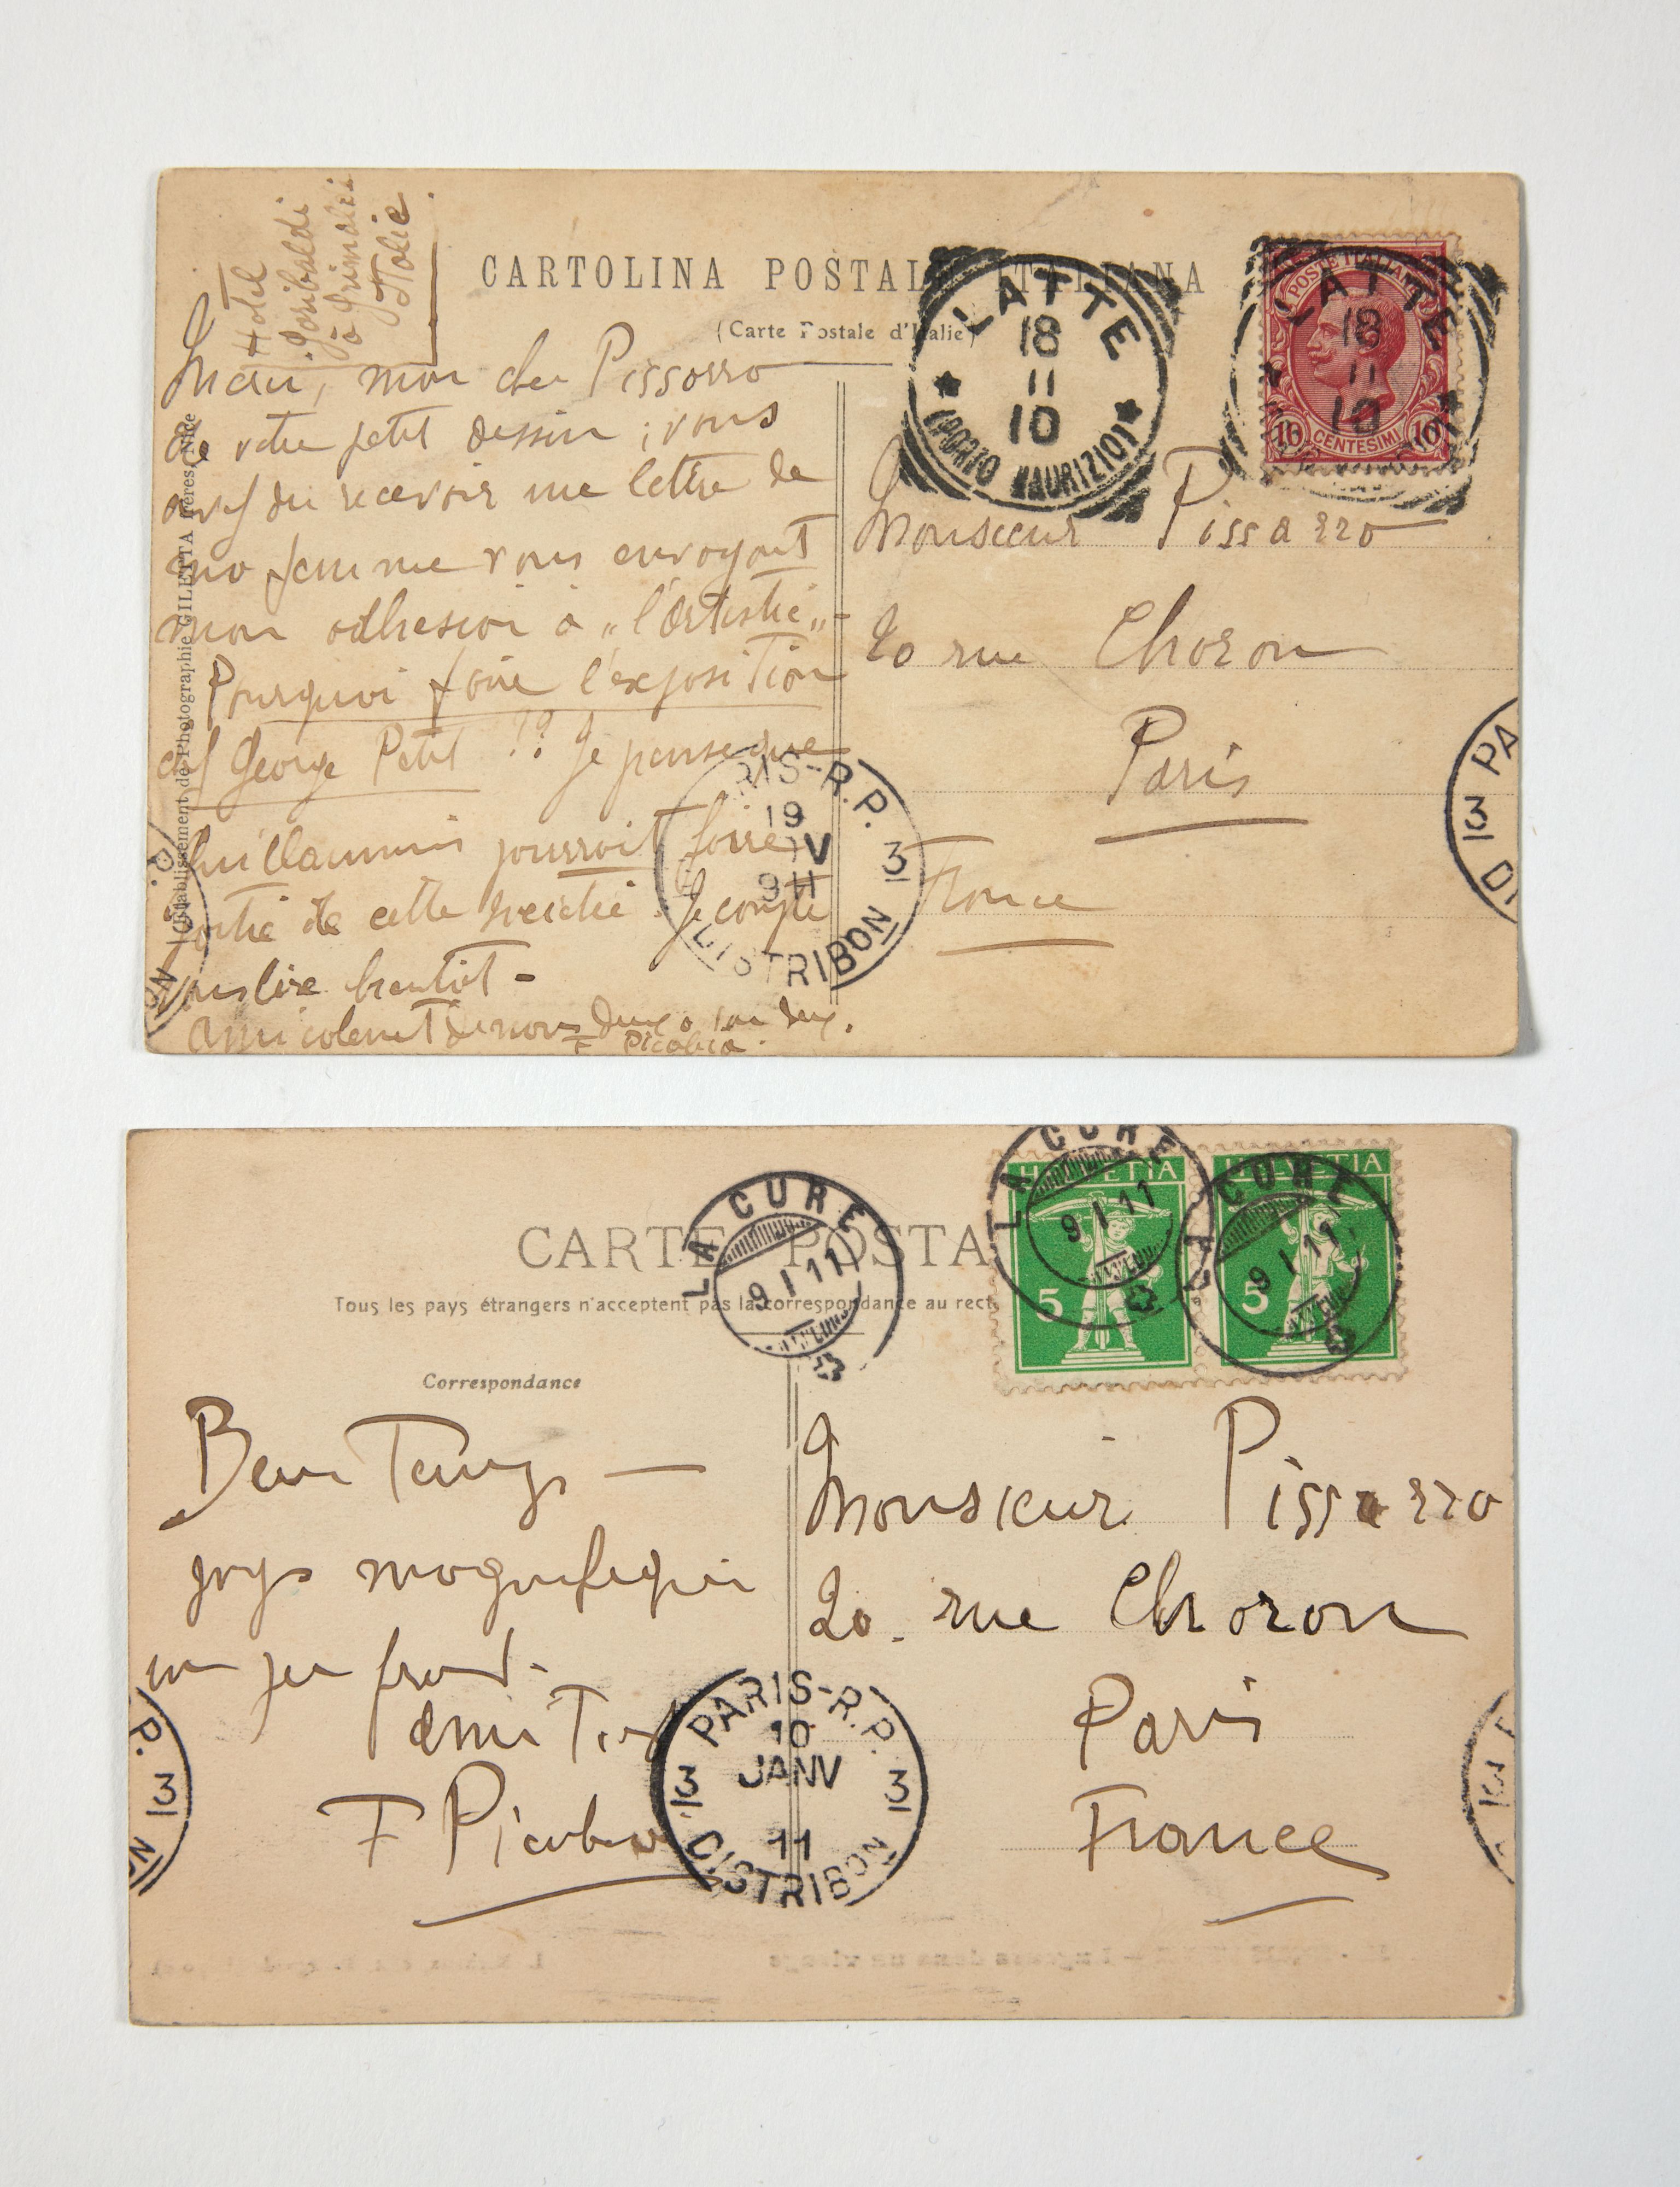 Hotel
Garibaldi
à Grimaldi
Italie
CARTOLINA POSTALE ITALIANA
(Carte Postale d'Italie)
LATTE
18
11
10
(PORTO MAURIZIO)
POSTE ITALIANE
10 CENTESIMI 10
LATTE
18
11
10
Merci, mon cher Pissarro
de votre petit dessin ; vous
avez du recevoir une lettre de
ma femme vous envoyant
mon adhesion à „l'Artistie„ -
Pourquoi faire l'exposition
chez George Petit ?? Je pense que
Guillaumin pourrait faire
partie de cette société. Je compte
vous lire bientot -
Amicalement de nous deux à vous deux.
F Picabia.
Monsieur Pissarro
20 rue Choron
Paris
France
Etablissement de Photographie GILETTA frères, Nice
PARIS-R.P.
19
3
DISTRIBON
PA
3
DI
P.
ON
CARTE POSTA
Tous les pays étrangers n'acceptent pas la correspondance au rect
Correspondance
LA CURE
9 I 11
HELVETIA
5
LA CURE
9 I 11
HELVETIA
5
LA CURE
9 I 11
Beau Temps —
pays magnifique
un peu froid.
F Picabia
Monsieur Pissarro
20. rue Choron
Paris
France
PARIS-R.P.
10
JANV
3 3
11
DISTRIBON
P. 3
ON